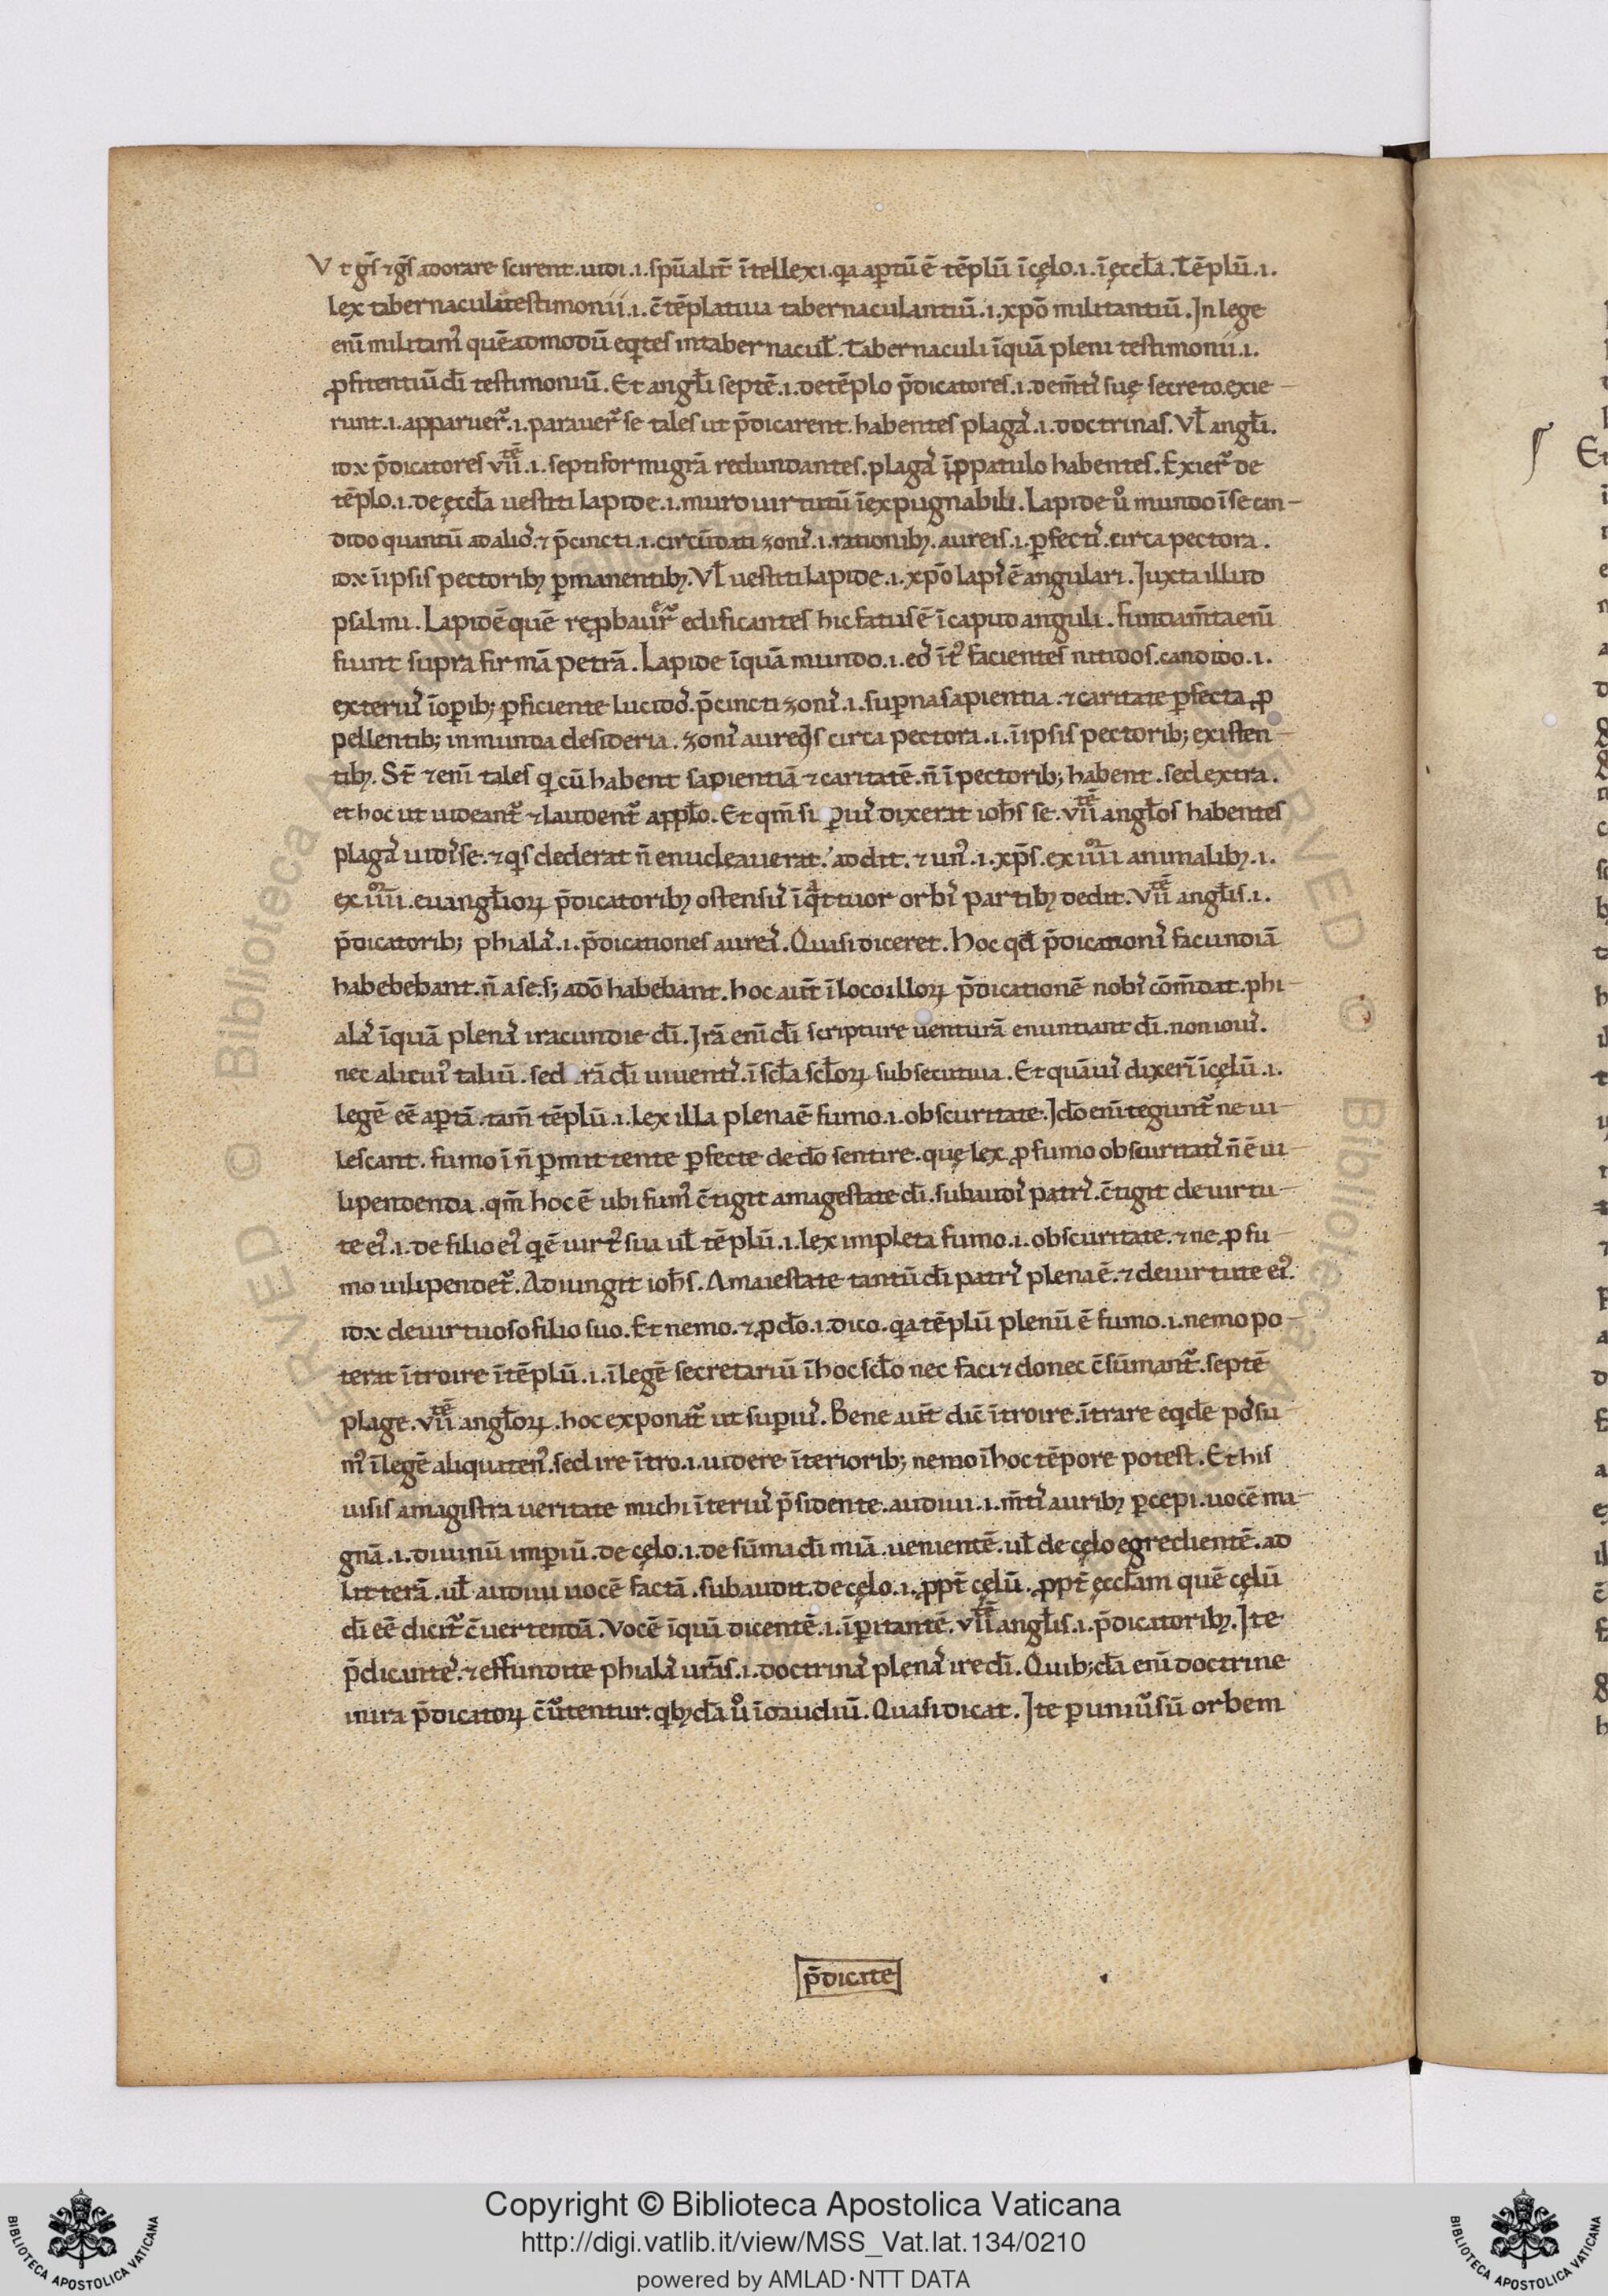 Vt gs̄ ⁊ gs̄ adorare scirent. uidi .i. spūalit̄ ītellexi. qa aptū ē tēplū ī cęlo .i. ī ęccła. Tēplū .i.
lex tabernaculi testimonii .i. c̄tēplatiua tabernaculantiū .i. xp̄o militantiū. In lege
enī militamꝰ quēadmodū eqͥtes in tabernacuł. Tabernaculi īquā pleni testimonii .i.
ꝓfitentiū dī testimoniū. Et angłi septē .i. de tēplo p̄dicatores .i. de m̄tis suę secreto. exie-
runt .i. apparuer̄ .i. parauer̄ se tales ut p̄dicarent. habentes plagas .i. doctrinas. Vł angłi.
idx p̄dicatores vii.tē .i. septiformi grā redundantes. plagas ī ꝓpatulo habentes. Exier̄ de
tēplo .i. de ęccła uestiti lapide .i. muro uirtutū īexpugnabili. Lapide u̾o mundo ī se can-
dido quantū ad alios. ⁊ p̄cincti .i. circūdati zonis .i. rationibꝫ. aureis .i. ꝑfectis. circa pectora.
idx ī ipsis pectoribꝫ ꝑmanentibꝫ. Vł uestiti lapide .i. xp̄o lapis ē angulari. Iuxta illud
psalmi. Lapidē quē reꝓbauer̄ edificantes hic factus ē ī caput anguli. fundam̄ta enī
fiunt supra firmā petrā. Lapide īquā mundo .i. eos ītꝰ facientes nitidos. candido .i.
exterius ī oꝑib; ꝑficiente lucidos. p̄cincti zonis .i. suꝑna sapientia. ⁊ caritate ꝑfecta. ꝓ
pellentib; inmunda desideria. zonis aureis circa pectora .i. ī ipsis pectorib; existen-
tibꝫ. St̄ ⁊enī tales qͥ cū habent sapientiā ⁊ caritatē. n̄ ī pectorib; habent. sed extra.
et hoc ut uideant̄ ⁊ laudent̄ a ppło. Et qm̄ suꝑius dixerat ioh̄s se. vii.tē angłos habentes
plagas uidisse. ⁊ qͥs dederat n̄ enucleauerat. addit. ⁊ unꝰ .i. xp̄s. ex iiii.or animalibꝫ .i.
ex iiii.or euangłiorꝝ p̄dicatoribꝫ ostensis ī qͣttuor orbis partibꝫ dedit. Vii.tē angłis .i.
p̄dicatorib; phialas .i. p̄dicationes aureas. Quasi diceret. Hoc qd̄ p̄dicationis facundiā
habebebant. n̄ a se. s; a dō habebant. hoc aut̄ ī loco illorꝝ p̄dicationē nobis cōm̄dat. phi-
alas īquā plenas iracundie dī. Irā enī dī scripture uenturā enuntiant dī. non iouis.
nec alicuiꝰ taliū. sed irā dī uiuentis. ī scła scłorꝝ subsecutiua. Et quāuis dixerī ī cęlū .i.
legē eē aptā. tam̄ tēplū .i. lex illa plena ē fumo .i. obscuritate. Ido enī tegunt̄ ne ui-
lescant. fumo ī n̄ ꝑmittente ꝑfecte de do sentire. quę lex ꝓ fumo obscuritatis n̄ ē ui-
lipendenda. qm̄ hoc ē ubi fumꝰ c̄tigit a magestate dī. subaudis patris. c̄tigit de uirtu-
te eiꝰ .i. de filio eiꝰ qͥ ē uirtꝰ sua uł tēplū .i. lex impleta fumo .i. obscuritate. ⁊ ne ꝓ fu-
mo uilipendet̄. Adiungit ioh̄s. A maiestate tantū dī patris plena ē. ⁊ de uirtute eiꝰ.
idx de uirtuoso filio suo. Et nemo. ⁊ ꝓdo .i. dico. qa tēplū plenū ē fumo .i. nemo po-
terat ītroire ī tēplū .i. ī legē secretariū ī hoc scło nec faciet donec c̄sūmant̄. septē
plage. vii.tē angłorꝝ. hoc exponat̄ ut suꝑius. Bene aut̄ dic̄ ītroire. ītrare eqͥde possu
mꝰ ī legē aliquatenꝰ. sed ire ītro .i. uidere īteriorib; nemo ī hoc tēpore potest. Et his
uisis a magistra ueritate michi īterius p̄sidente. audiui .i. m̄tis auribꝫ ꝑcepi. uocē ma-
gnā .i. diuinū imꝑiū. de cęlo .i. de sūma dī miā. uenientē. uł de cęlo egredientē. ad
litterā. uł audiui uocē factā. subaudit. de cęlo .i. ꝓpt̄ cęlū. ꝓpt̄ ęccłam quē cęlū
dī eē dicit̄ c̄uertendā. Vocē īquā dicentē .i. īꝑitantē. vii.tē angłis .i. p̄dicatoribꝫ. Ite
p̄dicantes. ⁊ effundite phialas ur̄as .i. doctrinas plenas ire dī. Quib;dā enī doctrine
iuira p̄dicatorꝝ c̄u̾tentur. qͥbꝫdā u̾o ī gaudiū. Quasi dicat. Ite ꝑ uniu̾sū orbem
p̄dicate
Copyright © Biblioteca Apostolica Vaticana
http://digi.vatlib.it/view/MSS_Vat.lat.134/0210
powered by AMLAD·NTT DATA
BIBLIOTECA APOSTOLICA VATICANA
BIBLIOTECA APOSTOLICA VATICANA